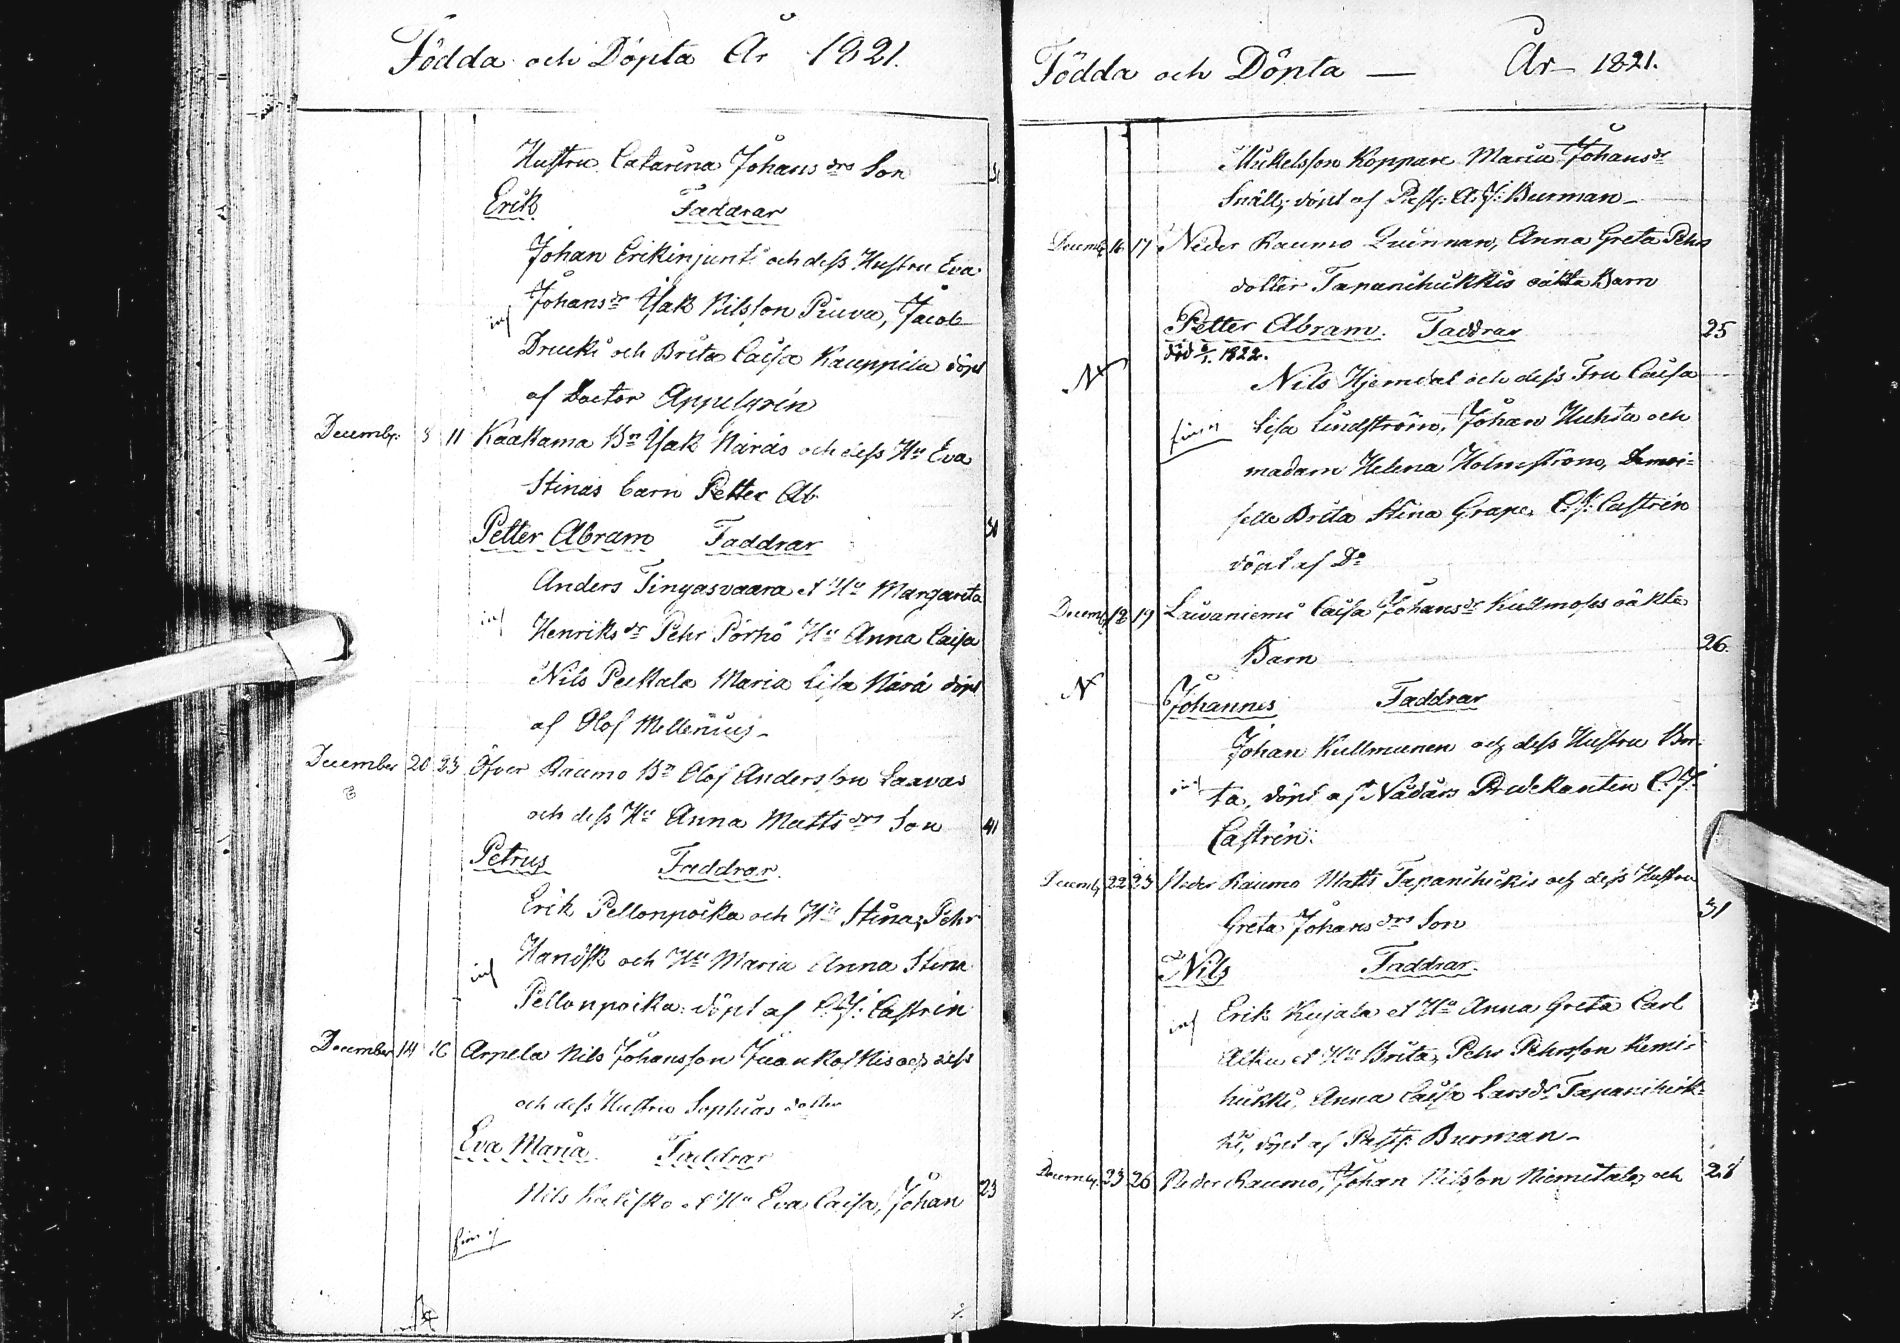 Födda och Döpta År 1821.
Hustru Catarina Johans drs Son 31
Erik Faddrar
Johan Erikinjunti och dess Hustru Eva
Johansdr Isak Nilsson Piuva, Jacob
inf
Drucki och Brita Caisa Kauppila döpt
af Doctor Appelgrén
Decembr: 8 11 Kaakama Bn Isak Närås och dess Hu Eva
Stinas barn Petter Ab
Petter Abram Faddrar 30
Anders Tingasvaara et Hu Margareta
inf
Henriksdr Pehr Pörhö Hu Anna Caisa
Nils Peckala Maria Lisa Närå döpt
af Olof Mellenius
December 20 23 Öfver Raumo Bn Olof Andersson Laavas
och dess Hu Anna Matts drs Son 41
Petrus Faddrar.
Erik Pellonpoika och Hu Stina, Pehr
Handsk och Hu Maria Anna Stina
inf
Pellonpoika. döpt af C. J: Castrén
December 14 16 Arpela Nils Johansson Juankoskis och dess
och dess Hustru Sophias dotter
Eva Maria Faddrar
Nils Kalisko et Hu Eva Caisa, Johan 23
Födda och Döpta — År 1821.
Mickelsson Koppare Maria Johansdr
Snäll, döpt af Past: A. J: Burman
Decembr 16 17 Neder Raumo Quinnan, Anna Greta Pehrs
dotter Tapanihukkis oäkta Barn
Petter Abram. Faddrar 25
död 6/1. 1822.
N
Nils Hjerndal och dess Fru Caisa
Lisa Lindström, Johan Huhta och
madam Helena Holmström, Demoi-
selle Brita Stina Grape, C. J: Castrén
döpt af Do
Decembr 12 19 Laivaniemi Caisa Johansdr Kullmoses oäkta
Barn 26.
N
Johannes Faddrar
Johan Kullmunen och dess Hustru Bri-
inf ta, döpt af Nådårs Predikanten C. J:
Castrén.
Decembr 22 23 Neder Raumo Matts Tapanihukis och dess Hustru
Greta Johans drs Son 31
Nils Faddrar.
Erik Kujala et Hu Anna Greta Carl
inf
Aiku et Hu Brita, Pehr Pehrsson Kemi-
hukki, Anna Caisa Larsdr Tapanihuk-
ki, döpt af Past: Burman
Decembr. 23 26 Neder Raumo, Johan Nilsson Niemitalo, och 28